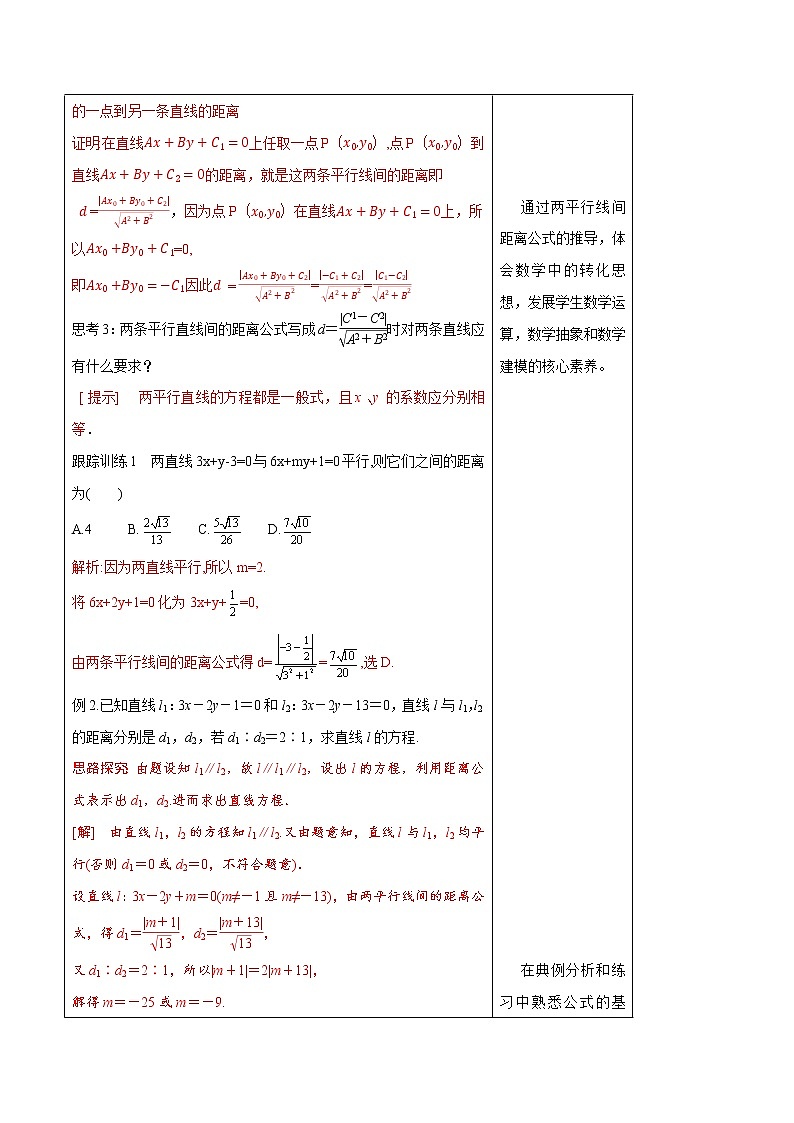 的一点到另一条直线的距离
证明:在直线Ax + By + C₁ = 0上任取一点P（x₀,y₀）,点P（x₀,y₀）到
直线Ax + By + C₂ = 0的距离，就是这两条平行线间的距离即
d = |Ax₀ + By₀ + C₂|/√(A² + B²)，因为点P（x₀,y₀）在直线Ax + By + C₁ = 0上，所
以Ax₀ + By₀ + C₁=0,
即Ax₀ + By₀ = −C₁因此d = |Ax₀ + By₀ + C₂|/√(A² + B²) = |−C₁ + C₂|/√(A² + B²) = |C₁−C₂|/√(A² + B²)
思考3：两条平行直线间的距离公式写成d＝|C¹－C²|/√(A²＋B²)时对两条直线应
有什么要求？
[提示]　两平行直线的方程都是一般式，且x、y 的系数应分别相
等．
跟踪训练1　两直线3x+y-3=0与6x+my+1=0平行,则它们之间的距离
为(　　)
A.4　B. 2√13/13　C. 5√13/26　D. 7√10/20
解析:因为两直线平行,所以 m=2.
将6x+2y+1=0化为3x+y+1/2=0,
由两条平行线间的距离公式得d= |−3−1/2|/√(3²+1²) = 7√10/20 ,选D.
例2.已知直线l₁：3x－2y－1＝0和l₂：3x－2y－13＝0，直线l与l₁，l₂
的距离分别是d₁，d₂，若d₁∶d₂＝2∶1，求直线l的方程.
思路探究：由题设知l₁∥l₂，故l∥l₁∥l₂，设出l的方程，利用距离公
式表示出d₁，d₂.进而求出直线方程．
[解]　由直线l₁，l₂的方程知l₁∥l₂.又由题意知，直线l与l₁，l₂均平
行(否则d₁＝0或d₂＝0，不符合题意)．
设直线l：3x－2y＋m＝0(m≠－1且m≠－13)，由两平行线间的距离公
式，得d₁＝|m＋1|/√13，d₂＝|m＋13|/√13，
又d₁∶d₂＝2∶1，所以|m＋1|＝2|m＋13|，
解得m＝－25或m＝－9.
通过两平行线间
距离公式的推导，体
会数学中的转化思
想，发展学生数学运
算，数学抽象和数学
建模的核心素养。
在典例分析和练
习中熟悉公式的基